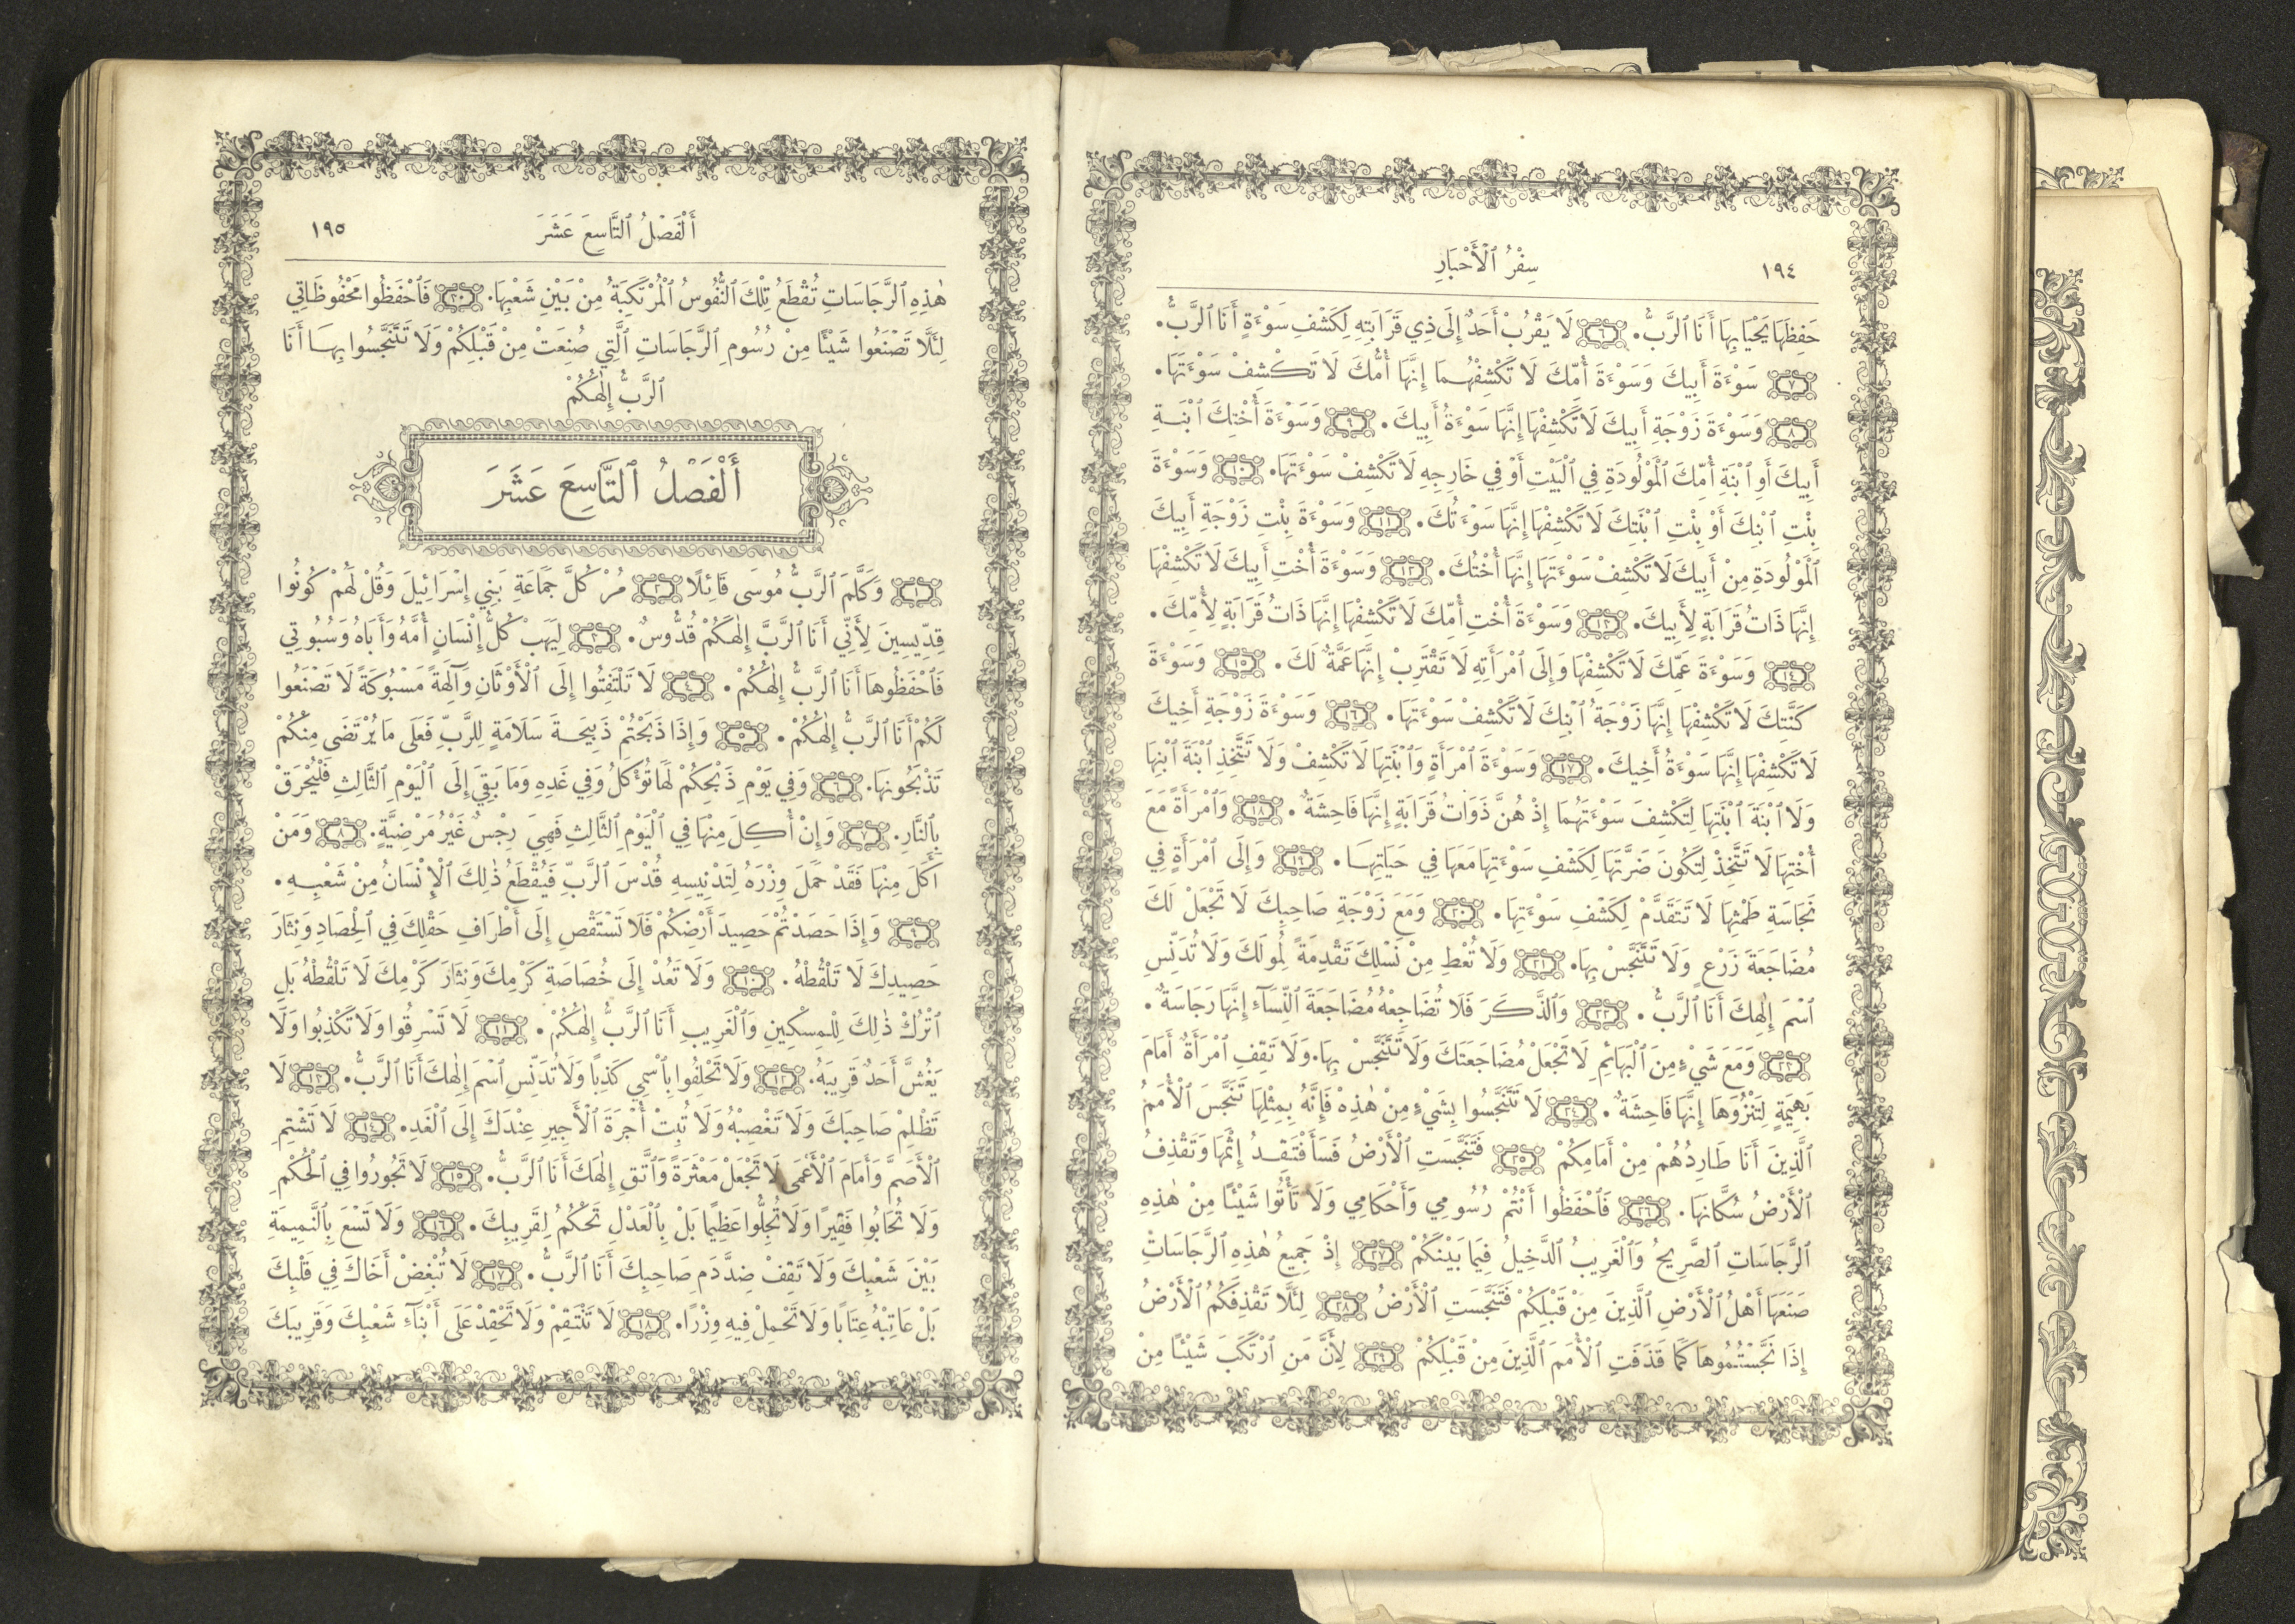 ١٩٤ سِفْرُ ٱلْأَحْبَارِ
حَفِظَهَا يَحْيَا بِهَا أَنَا ٱلرَّبُّ. ٦ لَا يَقْرُبْ أَحَدٌ إِلَى ذِي قَرَابَتِهِ لِكَشْفِ سَوْءَةٍ أَنَا ٱلرَّبُّ.
٧ سَوْءَةَ أَبِيكَ وَسَوْءَةَ أُمِّكَ لَا تَكْشِفْهُمَا إِنَّهَا أُمُّكَ لَا تَكْشِفْ سَوْءَتَهَا.
٨ وَسَوْءَةَ زَوْجَةِ أَبِيكَ لَا تَكْشِفْهَا إِنَّهَا سَوْءَةُ أَبِيكَ. ٩ وَسَوْءَةَ أُخْتِكَ ٱبْنَةِ
أَبِيكَ أَوِ ٱبْنَةِ أُمِّكَ ٱلْمَوْلُودَةِ فِي ٱلْبَيْتِ أَوْ فِي خَارِجِهِ لَا تَكْشِفْ سَوْءَتَهَا. ١٠ وَسَوْءَةَ
بِنْتِ ٱبْنِكَ أَوْ بِنْتِ ٱبْنَتِكَ لَا تَكْشِفْهَا إِنَّهَا سَوْءَتُكَ. ١١ وَسَوْءَةَ بِنْتِ زَوْجَةِ أَبِيكَ
ٱلْمَوْلُودَةِ مِنْ أَبِيكَ لَا تَكْشِفْ سَوْءَتَهَا إِنَّهَا أُخْتُكَ. ١٢ وَسَوْءَةَ أُخْتِ أَبِيكَ لَا تَكْشِفْهَا
إِنَّهَا ذَاتُ قَرَابَةٍ لِأَبِيكَ. ١٣ وَسَوْءَةَ أُخْتِ أُمِّكَ لَا تَكْشِفْهَا إِنَّهَا ذَاتُ قَرَابَةٍ لِأُمِّكَ.
١٤ وَسَوْءَةَ عَمِّكَ لَا تَكْشِفْهَا وَإِلَى ٱمْرَأَتِهِ لَا تَقْتَرِبْ إِنَّهَا عَمَّةٌ لَكَ. ١٥ وَسَوْءَةَ
كَنَّتِكَ لَا تَكْشِفْهَا إِنَّهَا زَوْجَةُ ٱبْنِكَ لَا تَكْشِفْ سَوْءَتَهَا. ١٦ وَسَوْءَةَ زَوْجَةِ أَخِيكَ
لَا تَكْشِفْهَا إِنَّهَا سَوْءَةُ أَخِيكَ. ١٧ وَسَوْءَةَ ٱمْرَأَةٍ وَٱبْنَتِهَا لَا تَكْشِفْ وَلَا تَتَّخِذِ ٱبْنَةَ ٱبْنِهَا
وَلَا ٱبْنَةَ ٱبْنَتِهَا لِتَكْشِفَ سَوْءَتَهُمَا إِذْ هُنَّ ذَوَاتُ قَرَابَةٍ إِنَّهَا فَاحِشَةٌ. ١٨ وَٱمْرَأَةً مَعَ
أُخْتِهَا لَا تَتَّخِذْ لِتَكُونَ ضَرَّتَهَا لِكَشْفِ سَوْءَتِهَا مَعَهَا فِي حَيَاتِهَا. ١٩ وَإِلَى ٱمْرَأَةٍ فِي
نَجَاسَةِ طَمْثِهَا لَا تَتَقَدَّمْ لِكَشْفِ سَوْءَتِهَا. ٢٠ وَمَعَ زَوْجَةِ صَاحِبِكَ لَا تَجْعَلْ لَكَ
مُضَاجَعَةَ زَرْعٍ وَلَا تَتَنَجَّسْ بِهَا. ٢١ وَلَا تُعْطِ مِنْ نَسْلِكَ تَقْدِمَةً لِمُولَكَ وَلَا تُدَنِّسِ
ٱسْمَ إِلٰهِكَ أَنَا ٱلرَّبُّ. ٢٢ وَٱلذَّكَرَ فَلَا تُضَاجِعْهُ مُضَاجَعَةَ ٱلنِّسَآءِ إِنَّهَا رَجَاسَةٌ.
٢٣ وَمَعَ شَيْءٍ مِنَ ٱلْبَهَائِمِ لَا تَجْعَلْ مُضَاجَعَتَكَ وَلَا تَتَنَجَّسْ بِهَا. وَلَا تَقِفِ ٱمْرَأَةٌ أَمَامَ
بَهِيمَةٍ لِتَنْزُوَهَا إِنَّهَا فَاحِشَةٌ. ٢٤ لَا تَتَنَجَّسُوا بِشَيْءٍ مِنْ هٰذِهِ فَإِنَّهُ بِمِثْلِهَا تَنَجَّسَ ٱلْأُمَمُ
ٱلَّذِينَ أَنَا طَارِدُهُمْ مِنْ أَمَامِكُمْ ٢٥ فَتَنَجَّسَتِ ٱلْأَرْضُ فَسَأَفْتَقِدُ إِثْمَهَا وَتَقْذِفُ
ٱلْأَرْضُ سُكَّانَهَا. ٢٦ فَٱحْفَظُوا أَنْتُمْ رُسُومِي وَأَحْكَامِي وَلَا تَأْتُوا شَيْئًا مِنْ هٰذِهِ
ٱلرَّجَاسَاتِ ٱلصَّرِيحُ وَٱلْغَرِيبُ ٱلدَّخِيلُ فِيمَا بَيْنَكُمْ ٢٧ إِذْ جَمِيعُ هٰذِهِ ٱلرَّجَاسَاتِ
صَنَعَهَا أَهْلُ ٱلْأَرْضِ ٱلَّذِينَ مِنْ قَبْلِكُمْ فَتَنَجَّسَتِ ٱلْأَرْضُ ٢٨ لِئَلَّا تَقْذِفَكُمُ ٱلْأَرْضُ
إِذَا نَجَّسْتُمُوهَا كَمَا قَذَفَتِ ٱلْأُمَمَ ٱلَّذِينَ مِنْ قَبْلِكُمْ ٢٩ لِأَنَّ مَنِ ٱرْتَكَبَ شَيْئًا مِنْ
أَلْفَصْلُ ٱلتَّاسِعَ عَشَرَ ١٩٥
هٰذِهِ ٱلرَّجَاسَاتِ تُقْطَعُ تِلْكَ ٱلنُّفُوسُ ٱلْمُرْتَكِبَةُ مِنْ بَيْنِ شَعْبِهَا. ٣٠ فَٱحْفَظُوا مَحْفُوظَاتِي
لِئَلَّا تَصْنَعُوا شَيْئًا مِنْ رُسُومِ ٱلرَّجَاسَاتِ ٱلَّتِي صُنِعَتْ مِنْ قَبْلِكُمْ وَلَا تَتَنَجَّسُوا بِهَا أَنَا
ٱلرَّبُّ إِلٰهُكُمْ
أَلْفَصْلُ ٱلتَّاسِعَ عَشَرَ
١ وَكَلَّمَ ٱلرَّبُّ مُوسَى قَائِلًا ٢ مُرْ كُلَّ جَمَاعَةِ بَنِي إِسْرَائِيلَ وَقُلْ لَهُمْ كُونُوا
قِدِّيسِينَ لِأَنِّي أَنَا ٱلرَّبَّ إِلٰهَكُمْ قُدُّوسٌ. ٣ لِيَهَبْ كُلُّ إِنْسَانٍ أُمَّهُ وَأَبَاهُ وَسُبُوتِي
فَٱحْفَظُوهَا أَنَا ٱلرَّبُّ إِلٰهُكُمْ. ٤ لَا تَلْتَفِتُوا إِلَى ٱلْأَوْثَانِ وَآلِهَةً مَسْبُوكَةً لَا تَصْنَعُوا
لَكُمْ أَنَا ٱلرَّبُّ إِلٰهُكُمْ. ٥ وَإِذَا ذَبَحْتُمْ ذَبِيحَةَ سَلَامَةٍ لِلرَّبِّ فَعَلَى مَا يُرْتَضَى مِنْكُمْ
تَذْبَحُونَهَا. ٦ وَفِي يَوْمِ ذَبْحِكُمْ لَهَا تُؤْكَلُ وَفِي غَدِهِ وَمَا بَقِيَ إِلَى ٱلْيَوْمِ ٱلثَّالِثِ فَلْيُحْرَقْ
بِٱلنَّارِ. ٧ وَإِنْ أُكِلَ مِنْهَا فِي ٱلْيَوْمِ ٱلثَّالِثِ فَهِيَ رِجْسٌ غَيْرُ مَرْضِيَّةٍ. ٨ وَمَنْ
أَكَلَ مِنْهَا فَقَدْ حَمَلَ وِزْرَهُ لِتَدْنِيسِهِ قُدْسَ ٱلرَّبِّ فَيُقْطَعُ ذٰلِكَ ٱلْإِنْسَانُ مِنْ شَعْبِهِ.
٩ وَإِذَا حَصَدْتُمْ حَصِيدَ أَرْضِكُمْ فَلَا تَسْتَقْصِ إِلَى أَطْرَافِ حَقْلِكَ فِي ٱلْحِصَادِ وَنِثَارَ
حَصِيدِكَ لَا تَلْقُطْهُ. ١٠ وَلَا تَعُدْ إِلَى خُصَاصَةِ كَرْمِكَ وَنِثَارَ كَرْمِكَ لَا تَلْقُطْهُ بَلِ
ٱتْرُكْ ذٰلِكَ لِلْمِسْكِينِ وَٱلْغَرِيبِ أَنَا ٱلرَّبُّ إِلٰهُكُمْ. ١١ لَا تَسْرِقُوا وَلَا تَكْذِبُوا وَلَا
يَغُشَّ أَحَدٌ قَرِيبَهُ. ١٢ وَلَا تَحْلِفُوا بِٱسْمِي كَذِبًا وَلَا تُدَنِّسِ ٱسْمَ إِلٰهِكَ أَنَا ٱلرَّبُّ. ١٣ لَا
تَظْلِمْ صَاحِبَكَ وَلَا تَغْصِبْهُ وَلَا تُبِتْ أُجْرَةَ ٱلْأَجِيرِ عِنْدَكَ إِلَى ٱلْغَدِ. ١٤ لَا تَشْتِمِ
ٱلْأَصَمَّ وَأَمَامَ ٱلْأَعْمَى لَا تَجْعَلْ مَعْثَرَةً وَٱتَّقِ إِلٰهَكَ أَنَا ٱلرَّبُّ. ١٥ لَا تَجُورُوا فِي ٱلْحُكْمِ
وَلَا تُحَابُوا فَقِيرًا وَلَا تُجِلُّوا عَظِيمًا بَلْ بِٱلْعَدْلِ تَحْكُمُ لِقَرِيبِكَ. ١٦ وَلَا تَسْعَ بِٱلنَّمِيمَةِ
بَيْنَ شَعْبِكَ وَلَا تَقِفْ ضِدَّ دَمِ صَاحِبِكَ أَنَا ٱلرَّبُّ. ١٧ لَا تُبْغِضْ أَخَاكَ فِي قَلْبِكَ
بَلْ عَاتِبْهُ عِتَابًا وَلَا تَحْمِلْ فِيهِ وِزْرًا. ١٨ لَا تَنْتَقِمْ وَلَا تَحْقِدْ عَلَى أَبْنَآءِ شَعْبِكَ وَقَرِيبَكَ